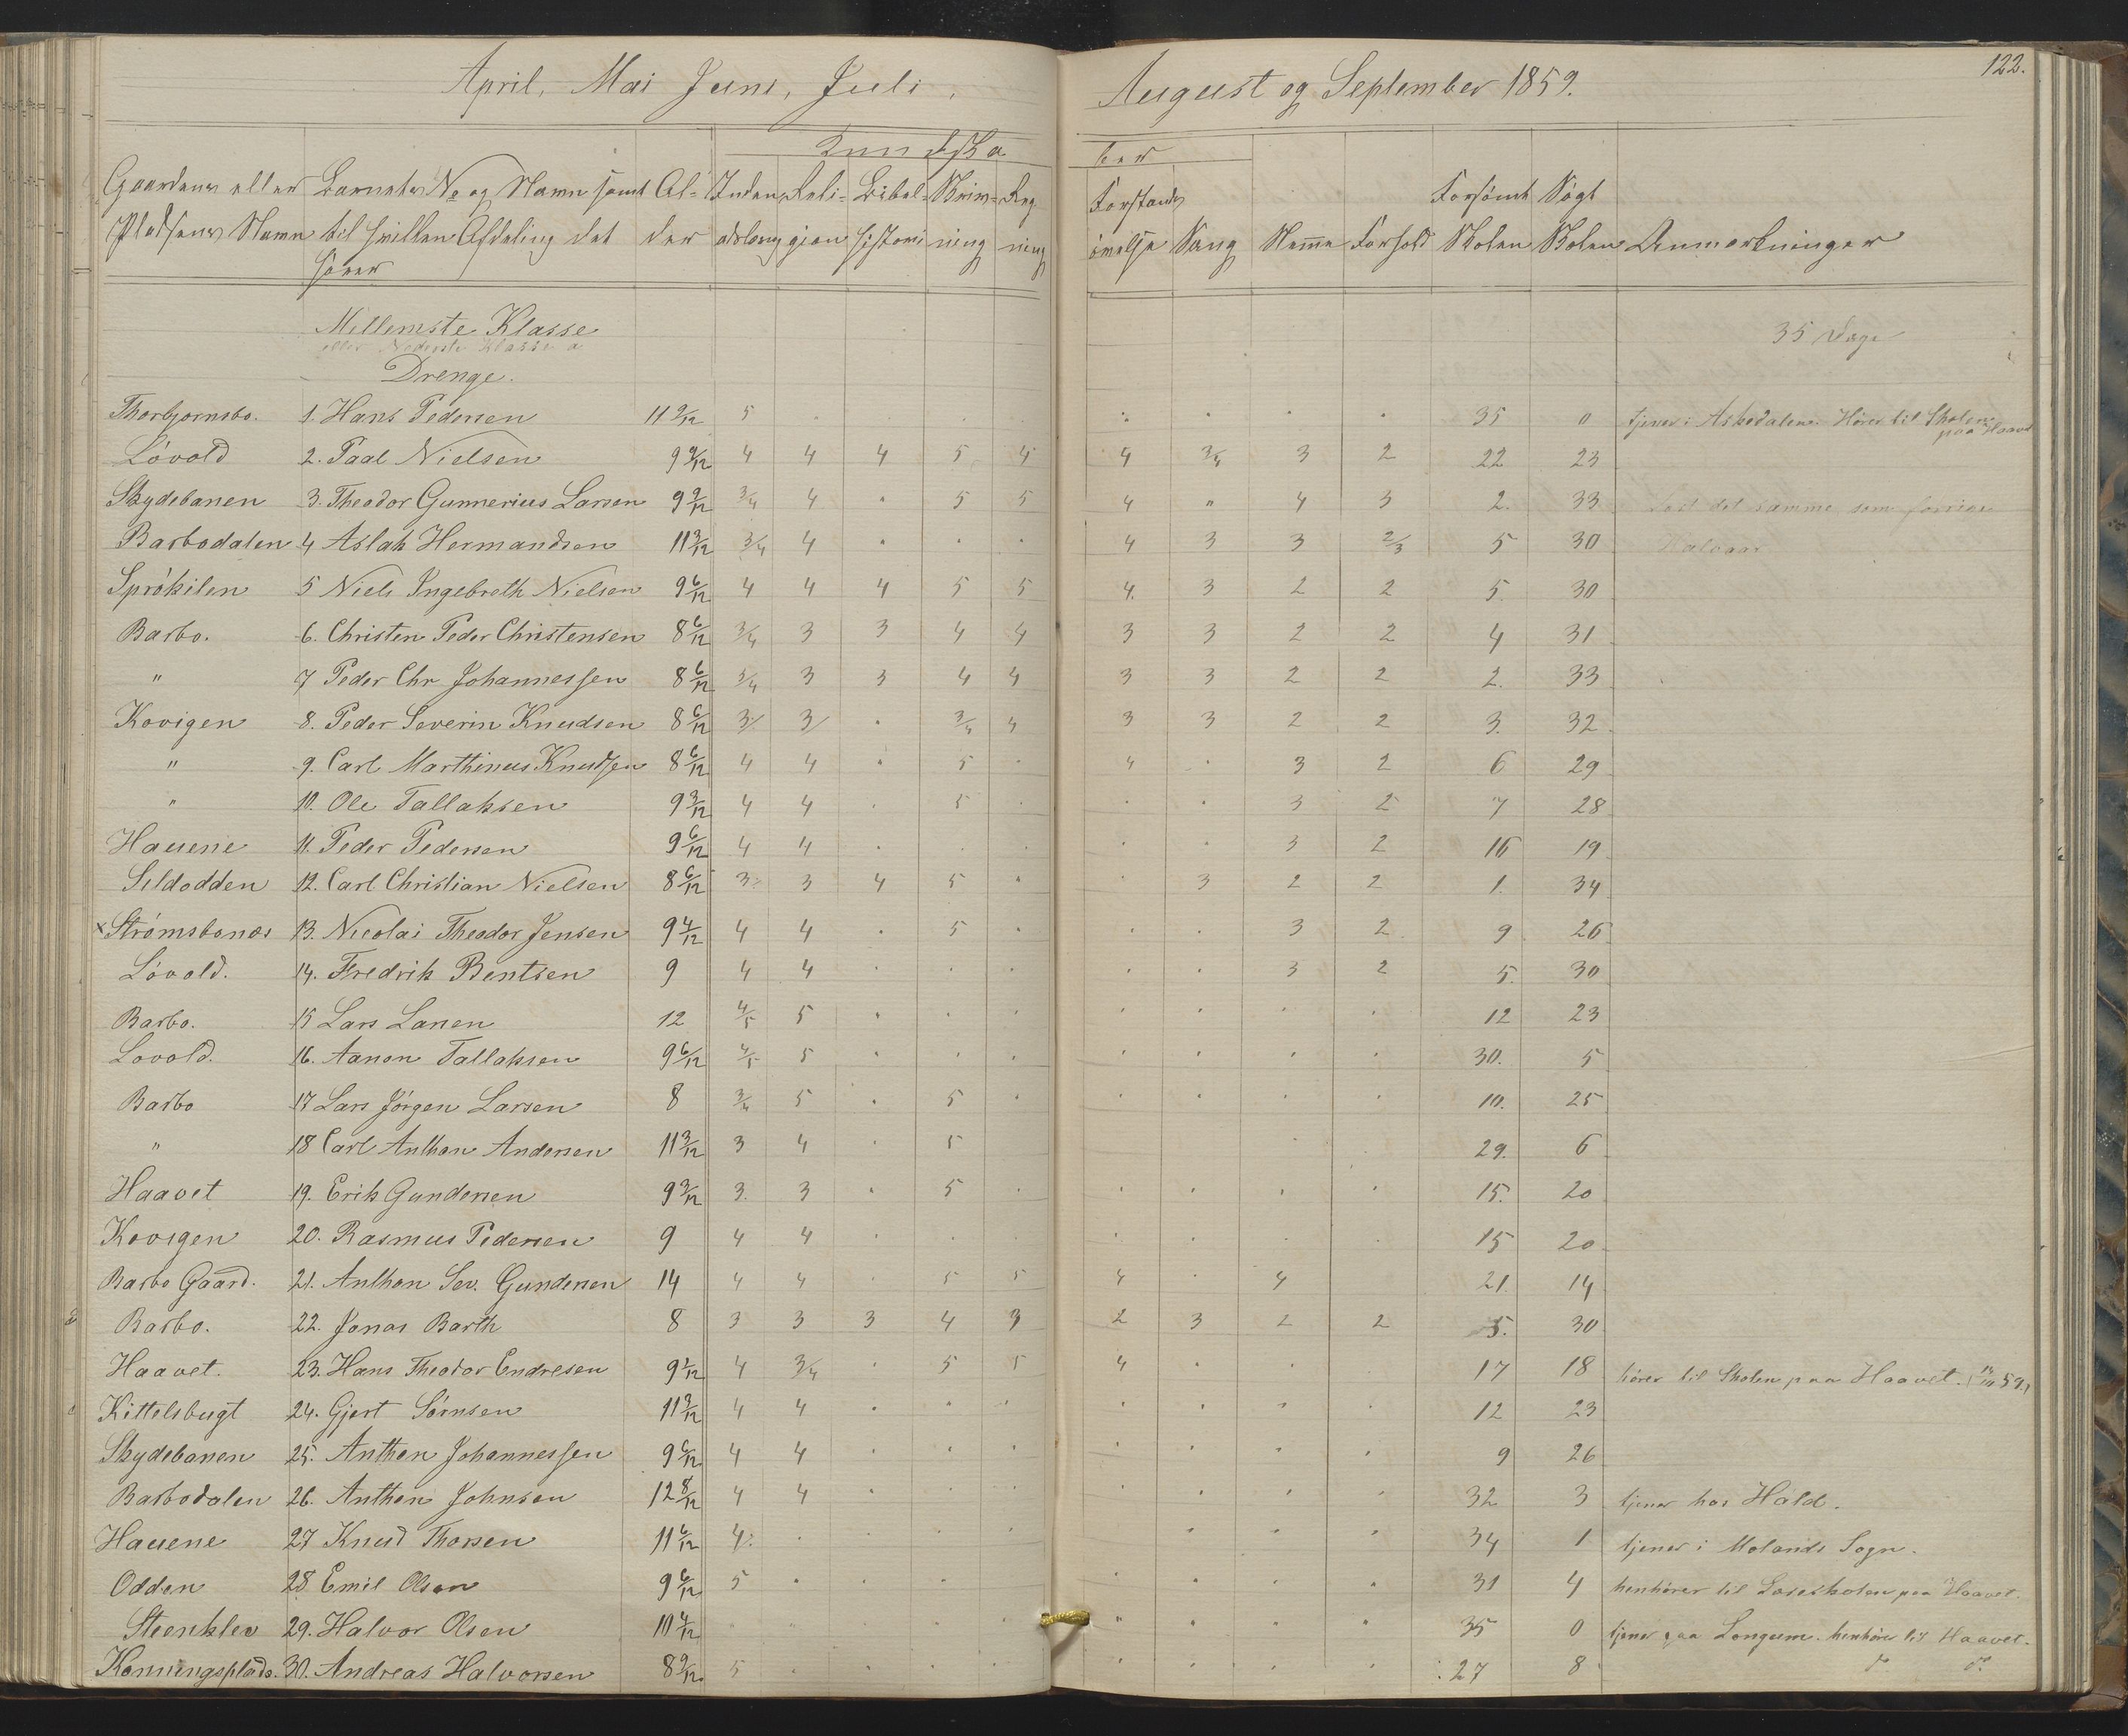 April, Mai Juni, Juli, August og September 1859. 122.
Kundska ber
Gaardens eller Barnets No og Navn samt Al- Inden Reli- Bibel- Skriv- Reg Forstands Forsømt Søgt
Pladsens Navn til hvilken Afdeling det der adslæsn gion historie ning ning øvelse Sang Nemme Forhold Skolen Skolen Anmærkninger
hører
Mellemste Klasse 35 Dage
eller Nederste Klasse a
Drenge.
Thorbjornsbo. 1. Hans Pedersen 11 9/12 5 . . . . 35 0 tjener i Askedalen. Hører til Skolen
paa Haavet
Lóvold 2. Paal Nielsen 9 9/12 4 4 4 5 4 4 3/4 3 2 22 23
Skydebanen 3. Theodor Gunnerius Larsen 9 9/12 3/4 4 . 5 5 4 " 4 3 2. 33 Læst det samme som forrige
Barbodalen 4 Aslak Hermandsen 11 3/12 3/4 4 . . . 4 3 3 2/3 5 30 Halvaar
Sprókilen 5 Niels Ingebreth Nielsen 9 6/12 4 4 4 5 5 4. 3 2 2 5. 30
Barbo. 6. Christen Peder Christensen 8 6/12 3/4 3 3 4 4 3 3 2 2 4 31
" 7 Peder Chr Johannessen 8 6/12 3/4 3 3 4 4 3 3 2 2 2. 33
Kovigen 8. Peder Severin Knudsen 8 6/12 3/ 3/ . 3/4 4 3 3 2 2 3. 32
" 9. Carl Marthinus Knudsen 8 6/12 4 4 . 5 . 4 . 3 2 6 29
" 10. Ole Tallaksen 9 3/12 4 4 . 5 . . . 3 2 7 28
Hauene 11. Peder Pedersen 9 6/12 4 4 . . . . . 3 2 16 19
Sildodden 12. Carl Christian Nielsen 8 6/12 3 3 4 5 . . 3 2 2 1. 34
x Strómsbonæs 13. Nicolai Theodor Jensen 9 4/12 4 4 . 5 . . . 3 2. 9 26
Lóvold. 14. Fredrik Bentsen 9 4 4 . . . . . 3 2 5. 30
Barbo. 15 Lars Larsen 12 4/5 5 . . . . . . . 12 23
Lovold. 16. Aanon Tallaksen 9 6/12 4/5 5 . . . . . . . 30. 5
Barbo 17 Lars Jórgen Larsen 8 3/4 5 . 5 . . . . . 10. 25
" 18 Carl Anthon Andersen 11 3/12 3 4 . 5 29. 6
Haavet 19. Erik Gundersen 9 3/12 3. 3 . 5 . . . . . 15. 20
Kovigen 20. Rasmus Pedersen 9 4 4 . . . . . . . 15 20
Barbo Gaard. 21. Anthon Sev. Gundersen 14 4 4 . 5 5 4 . 4 21. 14
Barbo. 22. Jonas Barth 8 3 3 3 4 3 2 3 2 2 5. 30
Haavet. 23. Hans Theodor Endresen 9 1/12 4 3/4 . 5 5 4 . . 17 18 hører til Skolen paa Haavet.
Kittelsbugt 24. Gjert Sórnsen 11 3/12 4 4 . . . . . . . 12 23
Skydebanen 25. Anthon Johannessen 9 6/12 4 4 . . . . . . . 9 26
Barbodalen 26. Anthon Johnsen 12 8/12 4 4 . . . . . . . 32 3 tjener hos Hald.
Hauene 27 Knud Thorsen 11 6/12 4. . . . . . . . 34 1 tjener i Molands Sogn.
Odden 28 Emil Olsen 9 6/12 5 . . . . . . . 31 4 henhører til Læseskolen paa Haavet.
Steenklev 29. Halvor Olsen 10 4/12 " . . . 35 0 tjener paa Longum. henhører til Haavet.
Konningsplads. 30. Andreas Halvorsen 8 9/12 5 . . . . . . . . 27 8 do do